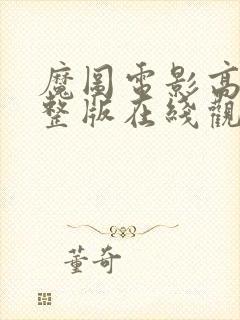 魔圖電影高
整版在綫觀
董奇